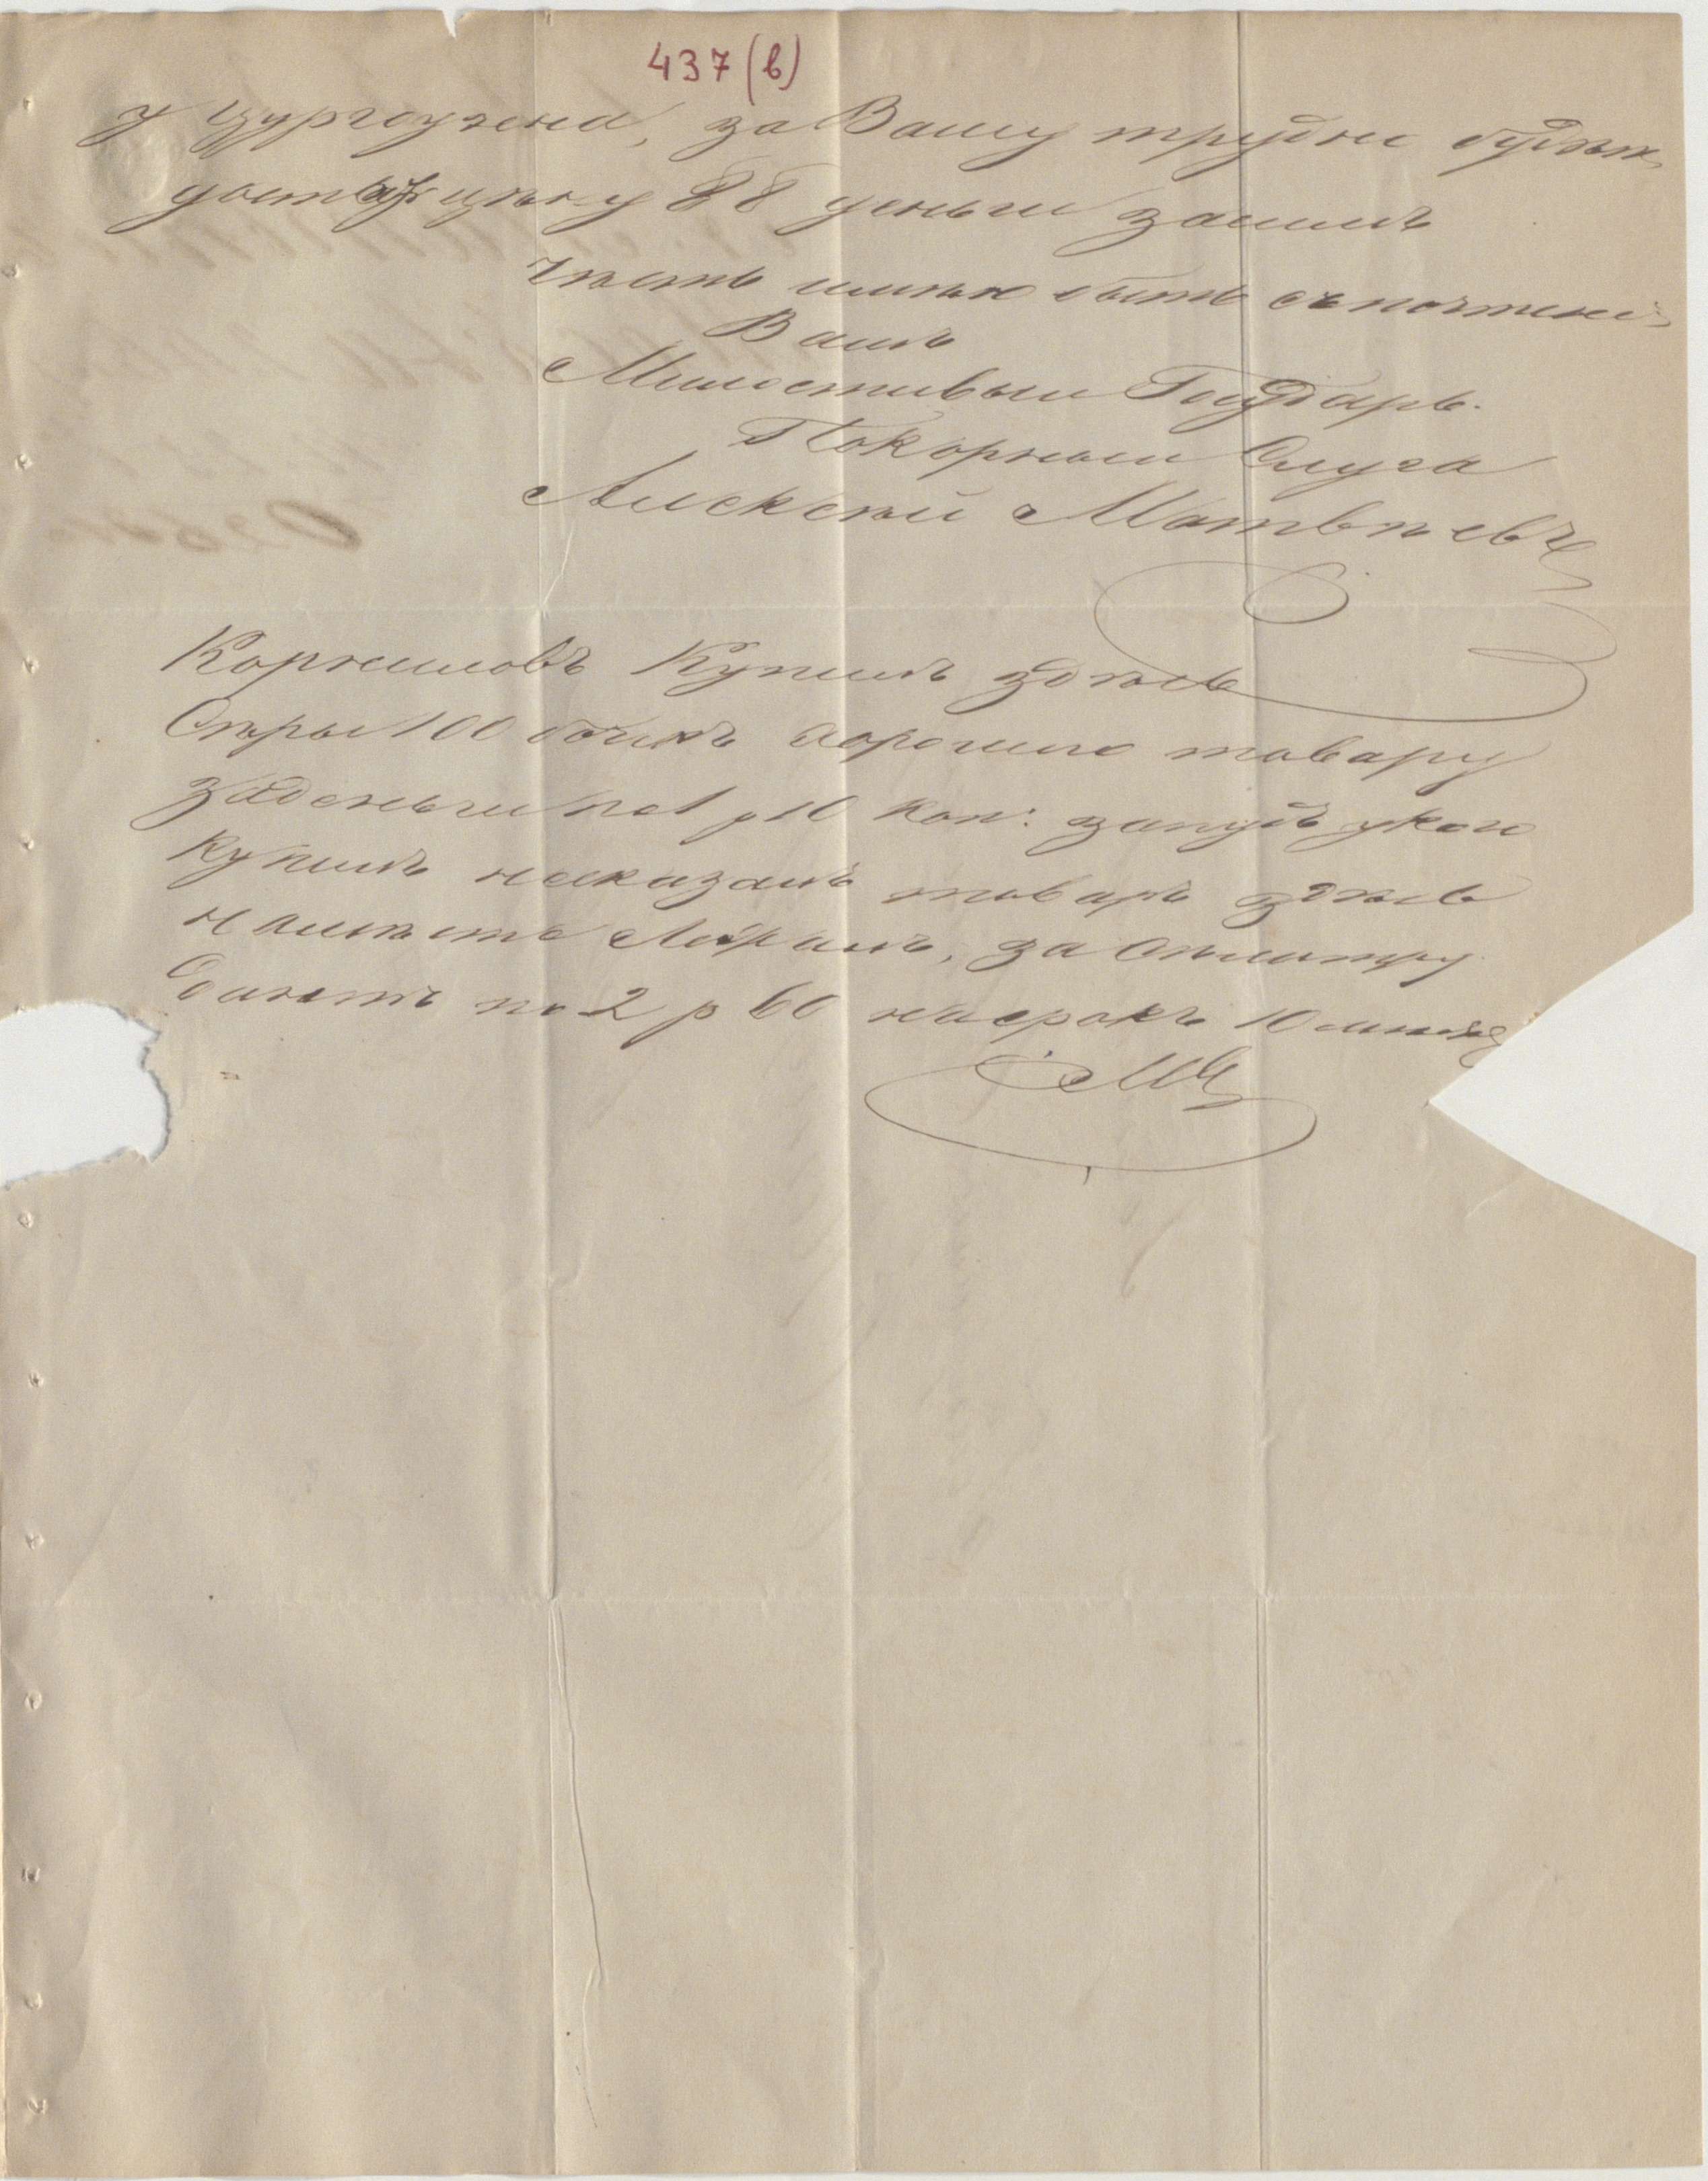 437 (в)
у Цургоузена, за Вашу трудно будетъ
достать цѣну 88 деньги Засимъ
Честь имѣю быть съ почтени:
Вамъ
Милостивыи Государь.
Покорныи Слуга
Алексѣй Матвѣевъ
Корниловъ Купилъ здѣсь
Сѣры 100 бочкъ хорошіо товару
заденьги по 1 р 10 коп: запудъ укого
Купилъ несказалъ товаръ здѣсь
намѣсте, за Силитру
Даютъ по 2 р 60 насрокъ 10
АМ